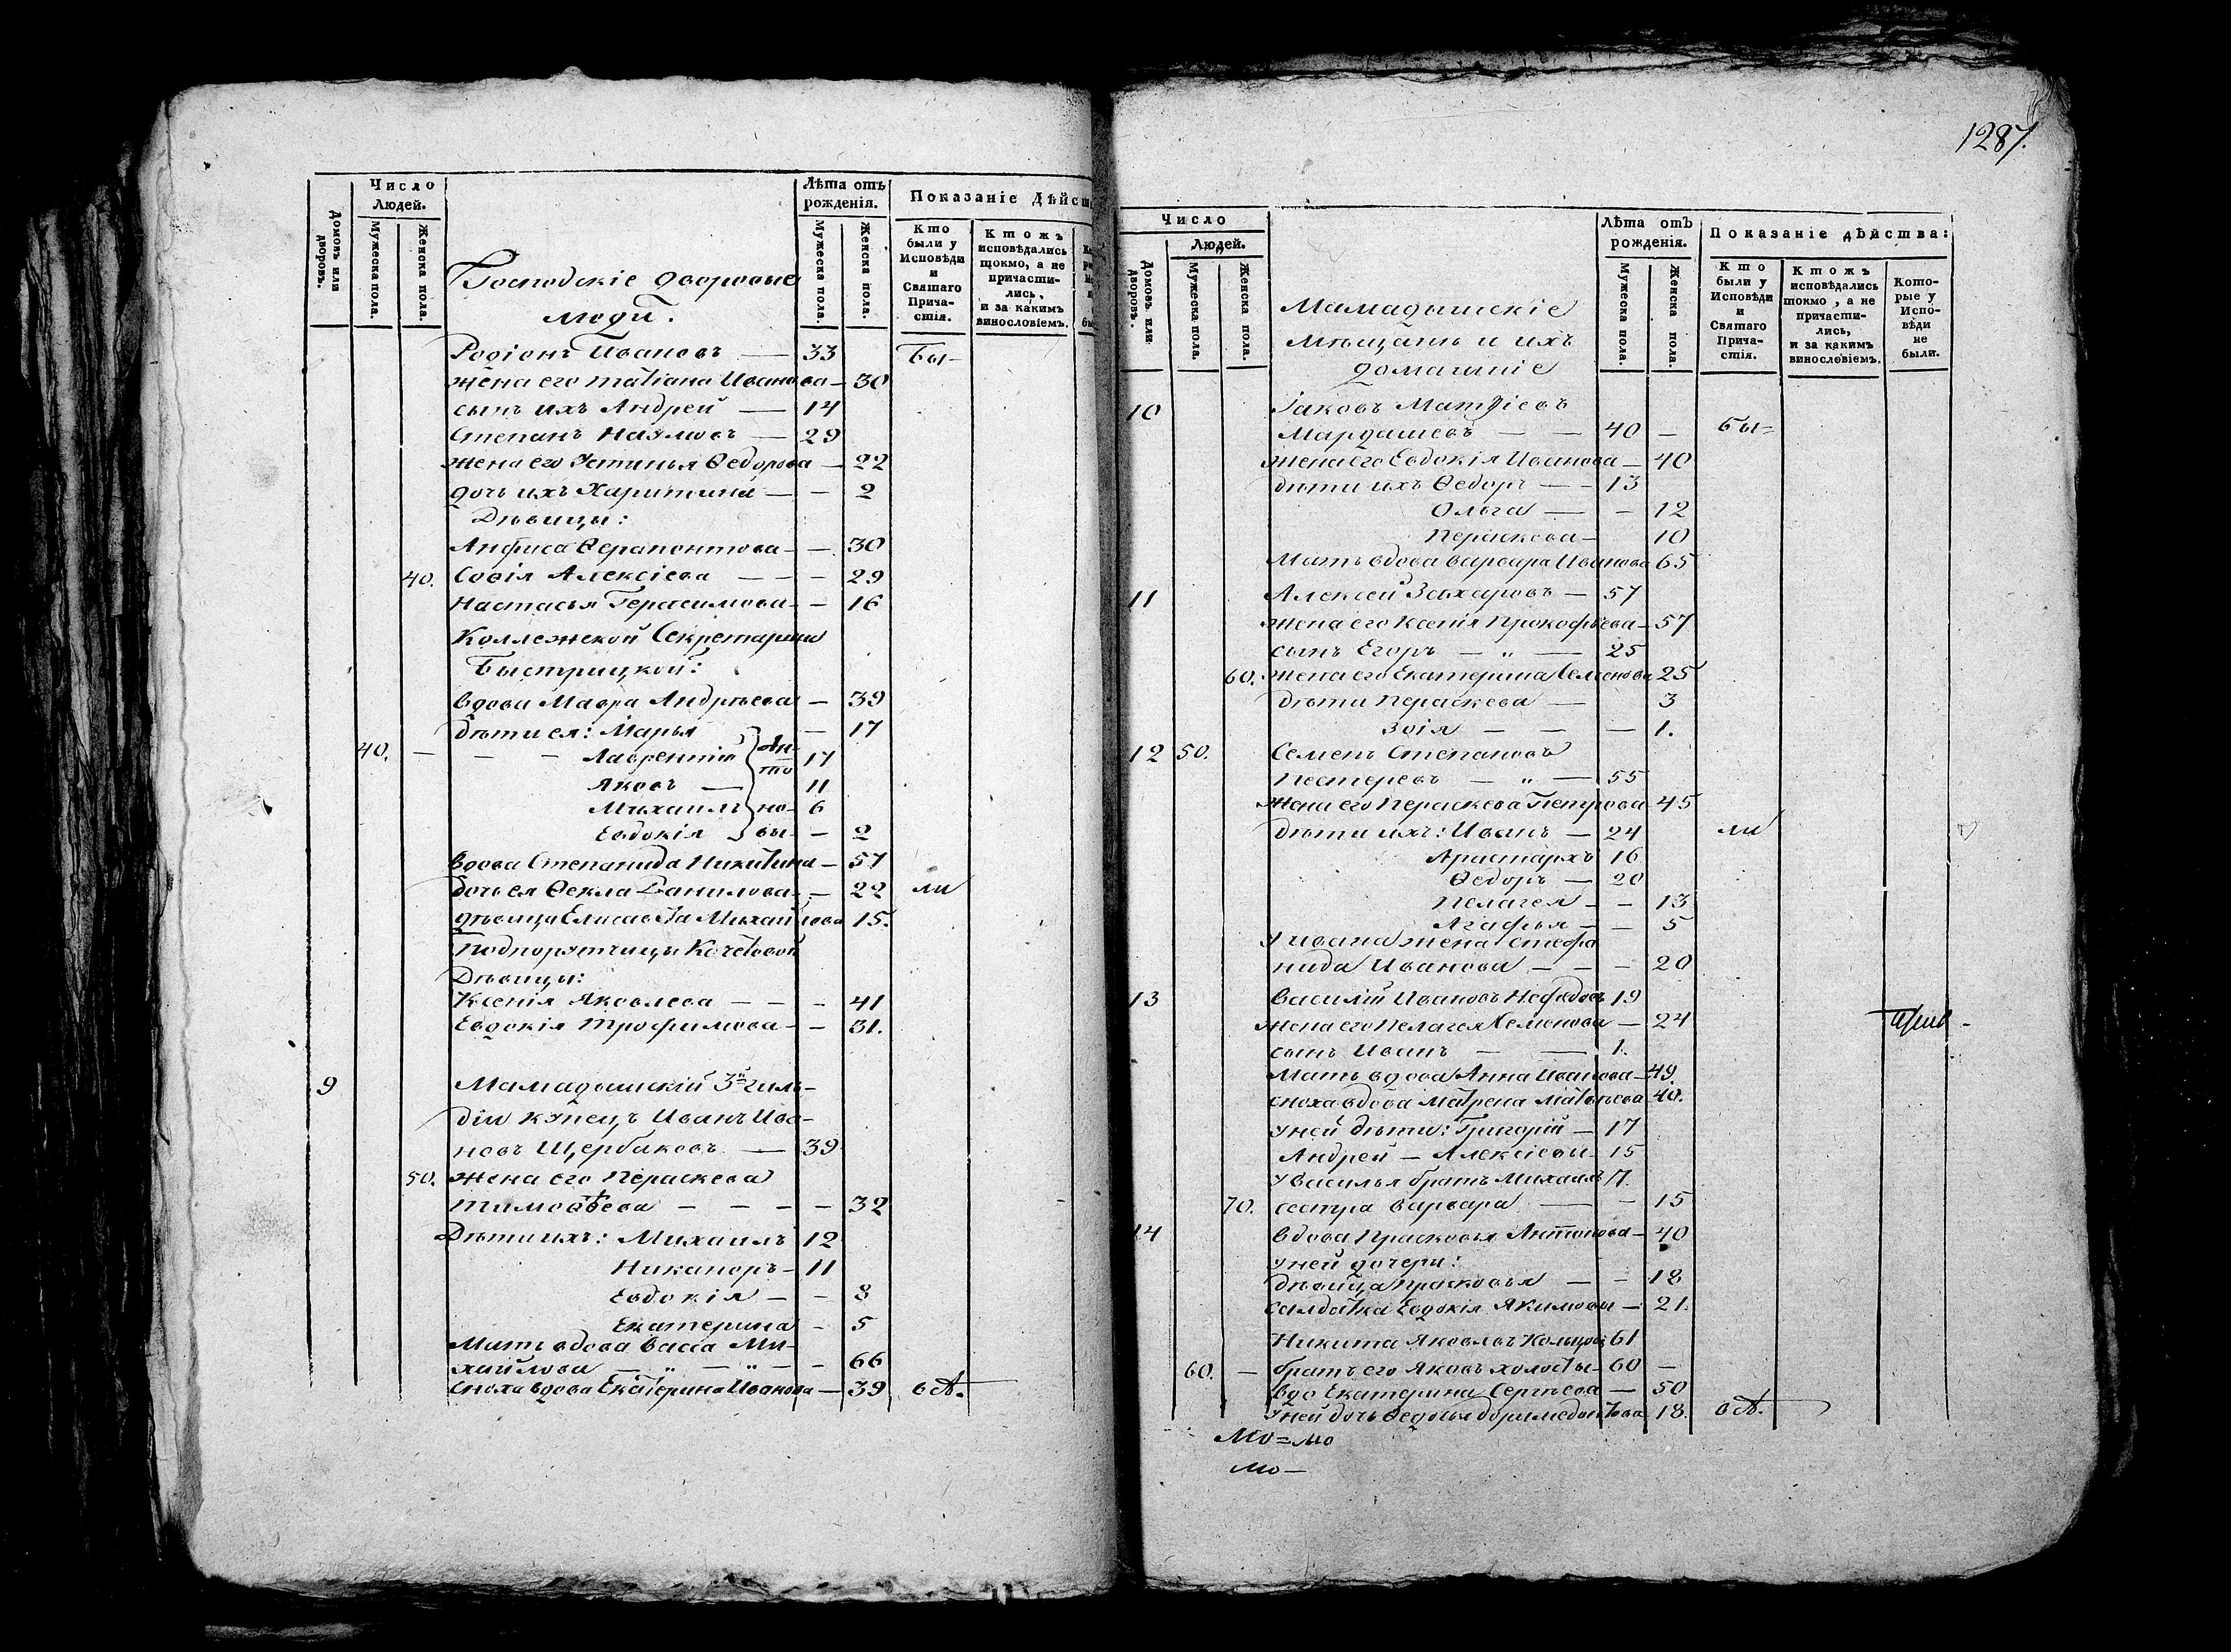 Число
Людей.
Домовъ или дворовъ.
Мужеска пола.
Женска пола.
Лѣта отъ рожденія.
Мужеска пола.
Женска пола.
Показаніе Дѣйс
Кто были у Исповѣди и Святаго Прича-стія.
Ктожъ исповѣдались токмо, а не причасти-лись, и за какимъ винословіемъ.
Господскіе дворовые
люди.
Родіонъ Ивановъ — 33 Бы-
жена его татіана Иванова — 30
сынъ ихъ Андрей — 14
Степанъ Наумовъ — 29
жена его Устинья Ѳедорова — 22
дочь ихъ Харитина — — 2
Дѣвицы:
Анфиса Ѳерапонтова — — 30
40. Софія Алексіева — — — 29
Настасья Герасимова — — 16
Коллежской Секретарши
Быстрицкой:
вдова Мавра Андрѣева — 39
дѣти ея: Марья — 17
40. — — — Лаврентій Ан- 17
Яковъ — то 11
Михаилъ но- 6
Евдокія вы- — 2
вдова Степанида Никитина — 57
дочь ея Ѳекла Данилова — — 22 ли
дѣвица Елисавета Михайлова 15.
Подпорутчицы Кочетовой
Дѣвицы:
Ксенія Яковлева — — — 41
Евдокія Трофимова — — 31.
9 Мамадышскій 3й гиль-
діи купецъ Иванъ Ива-
новъ Щербаковъ — 39
50. жена его Пераскева
тимоѳѣева — — — — 32
Дѣти ихъ: Михаилъ 12
Никаноръ — 11
Евдокія — — 8
Екатерина — 5
Мать вдова Васса Ми-
хайлова — „ — „ — — 66
сноха вдова Екатерина Иванова — 39 в А.
1287.
Число
Людей.
Домовъ или дворовъ.
Мужеска пола.
Женска пола.
Лѣта отъ рожденія.
Мужеска пола.
Женска пола.
Показаніе дѣйства:
Кто были у Исповѣди и Святаго Прича-стія.
Ктожъ исповѣдались токмо, а не причасти-лись, и за какимъ винословіемъ.
Кото-рые у Испо-вѣди не были.
Мамадышскіе
Мѣщанъ и ихъ
домашніе
10 Іаковъ Матѳіевъ
Мардашевъ — — 40 — бы=
жена его Евдокія Иванова — 40
дѣти ихъ Ѳедоръ — — 13
Ольга — — 12
Пераскева — 10
Мать вдова варвара Иванова 65
11 Алексей Захаровъ — 57
жена его Ксенія Прокофьева — 57
сынъ Егоръ — „ — 25
60. жена его Екатерина Семенова 25
дѣти Пераскева — 3
Зоія — — — 1.
12 50. Семенъ Степановъ
Пестеревъ — „ — 55
жена его Пераскева Петрова 45
дѣти ихъ: Иванъ — 24 ли
Аристархъ 16
Ѳедоръ — 20
Пелагея — — 13
Агафья — — 5
У ивана жена стефа
нида Иванова — — — 20
13 василій Ивановъ Нефедовъ 19
жена его Пелагея Семенова — 24
сынъ Иванъ — — 1.
Мать вдова Анна Иванова — 49.
сноха вдова Матрена Матвѣева 40.
у ней дѣти: Григорій — 17
Андрей — Алексіевы — 15
у василья братъ Михаилъ 17.
70. сестра варвара — — 15
14 вдова Прасковья Антонова — 40
у ней дочери:
дѣвица Прасковья — — 18
салдатка Евдокія Якимовы — 21.
Никита Яковлевъ Кольцовъ 61
60. — братъ его Яковъ холосты — 60 —
вдо Екатерина Сергѣева — 50
у ней дочь Ѳедосья доримедонтова 18. в А.
Мо=мо
мо —